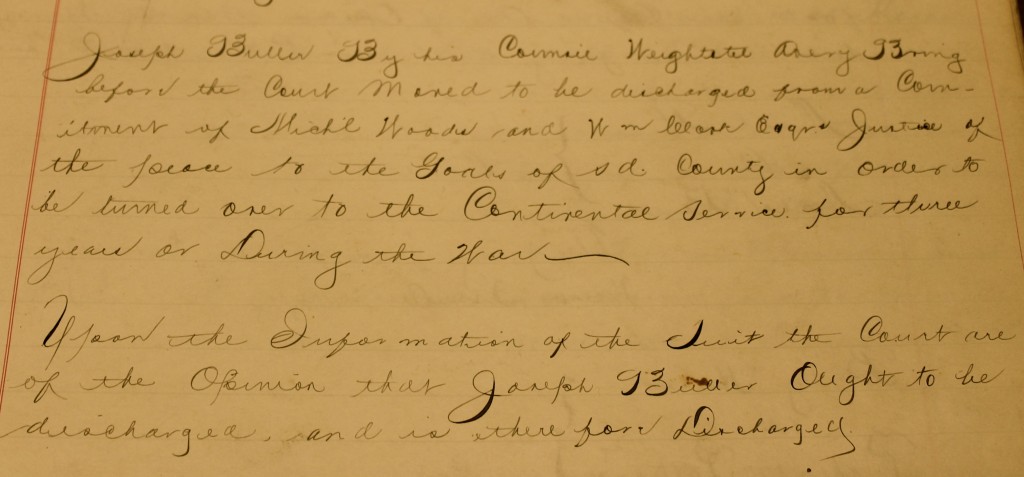 Joseph Buller By his Councie Weightstel Avery Bring
before the Court Moved to be discharged from a Com-
itment of Mich'l Woods and Wm Clark Esqrs Justice of
the peace to the Goals of sd. County in order to
be turned over to the Continental Service. for three
years or During the War
Upon the Information of the Suit the Court are
of the Opinion that Joseph Buller Ought to be
discharged. and is there fore Discharged